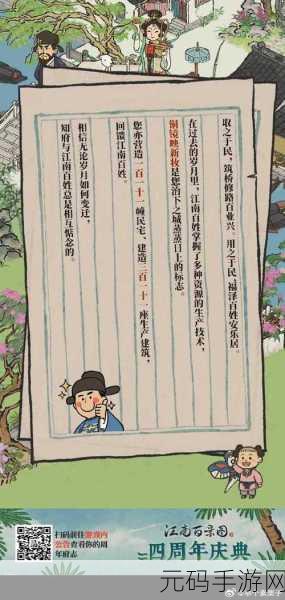 取之于民，筑桥修路百业兴。用之于民，福泽百姓安乐居。
在过去的岁月里，江南百姓掌握了多种资源的生产技术，
铜镜映新妆是您治下之城蒸蒸日上的标志。
您亦营造一百一十一幢民宅、建造三百一十一座生产建筑，
回馈江南百姓。
相信无论岁月如何变迁，
知府与江南百姓总是相互惦念的。
扫码前往游戏内
公告查看你的周
年府志
江南百景图
四周年庆典
元码手游网